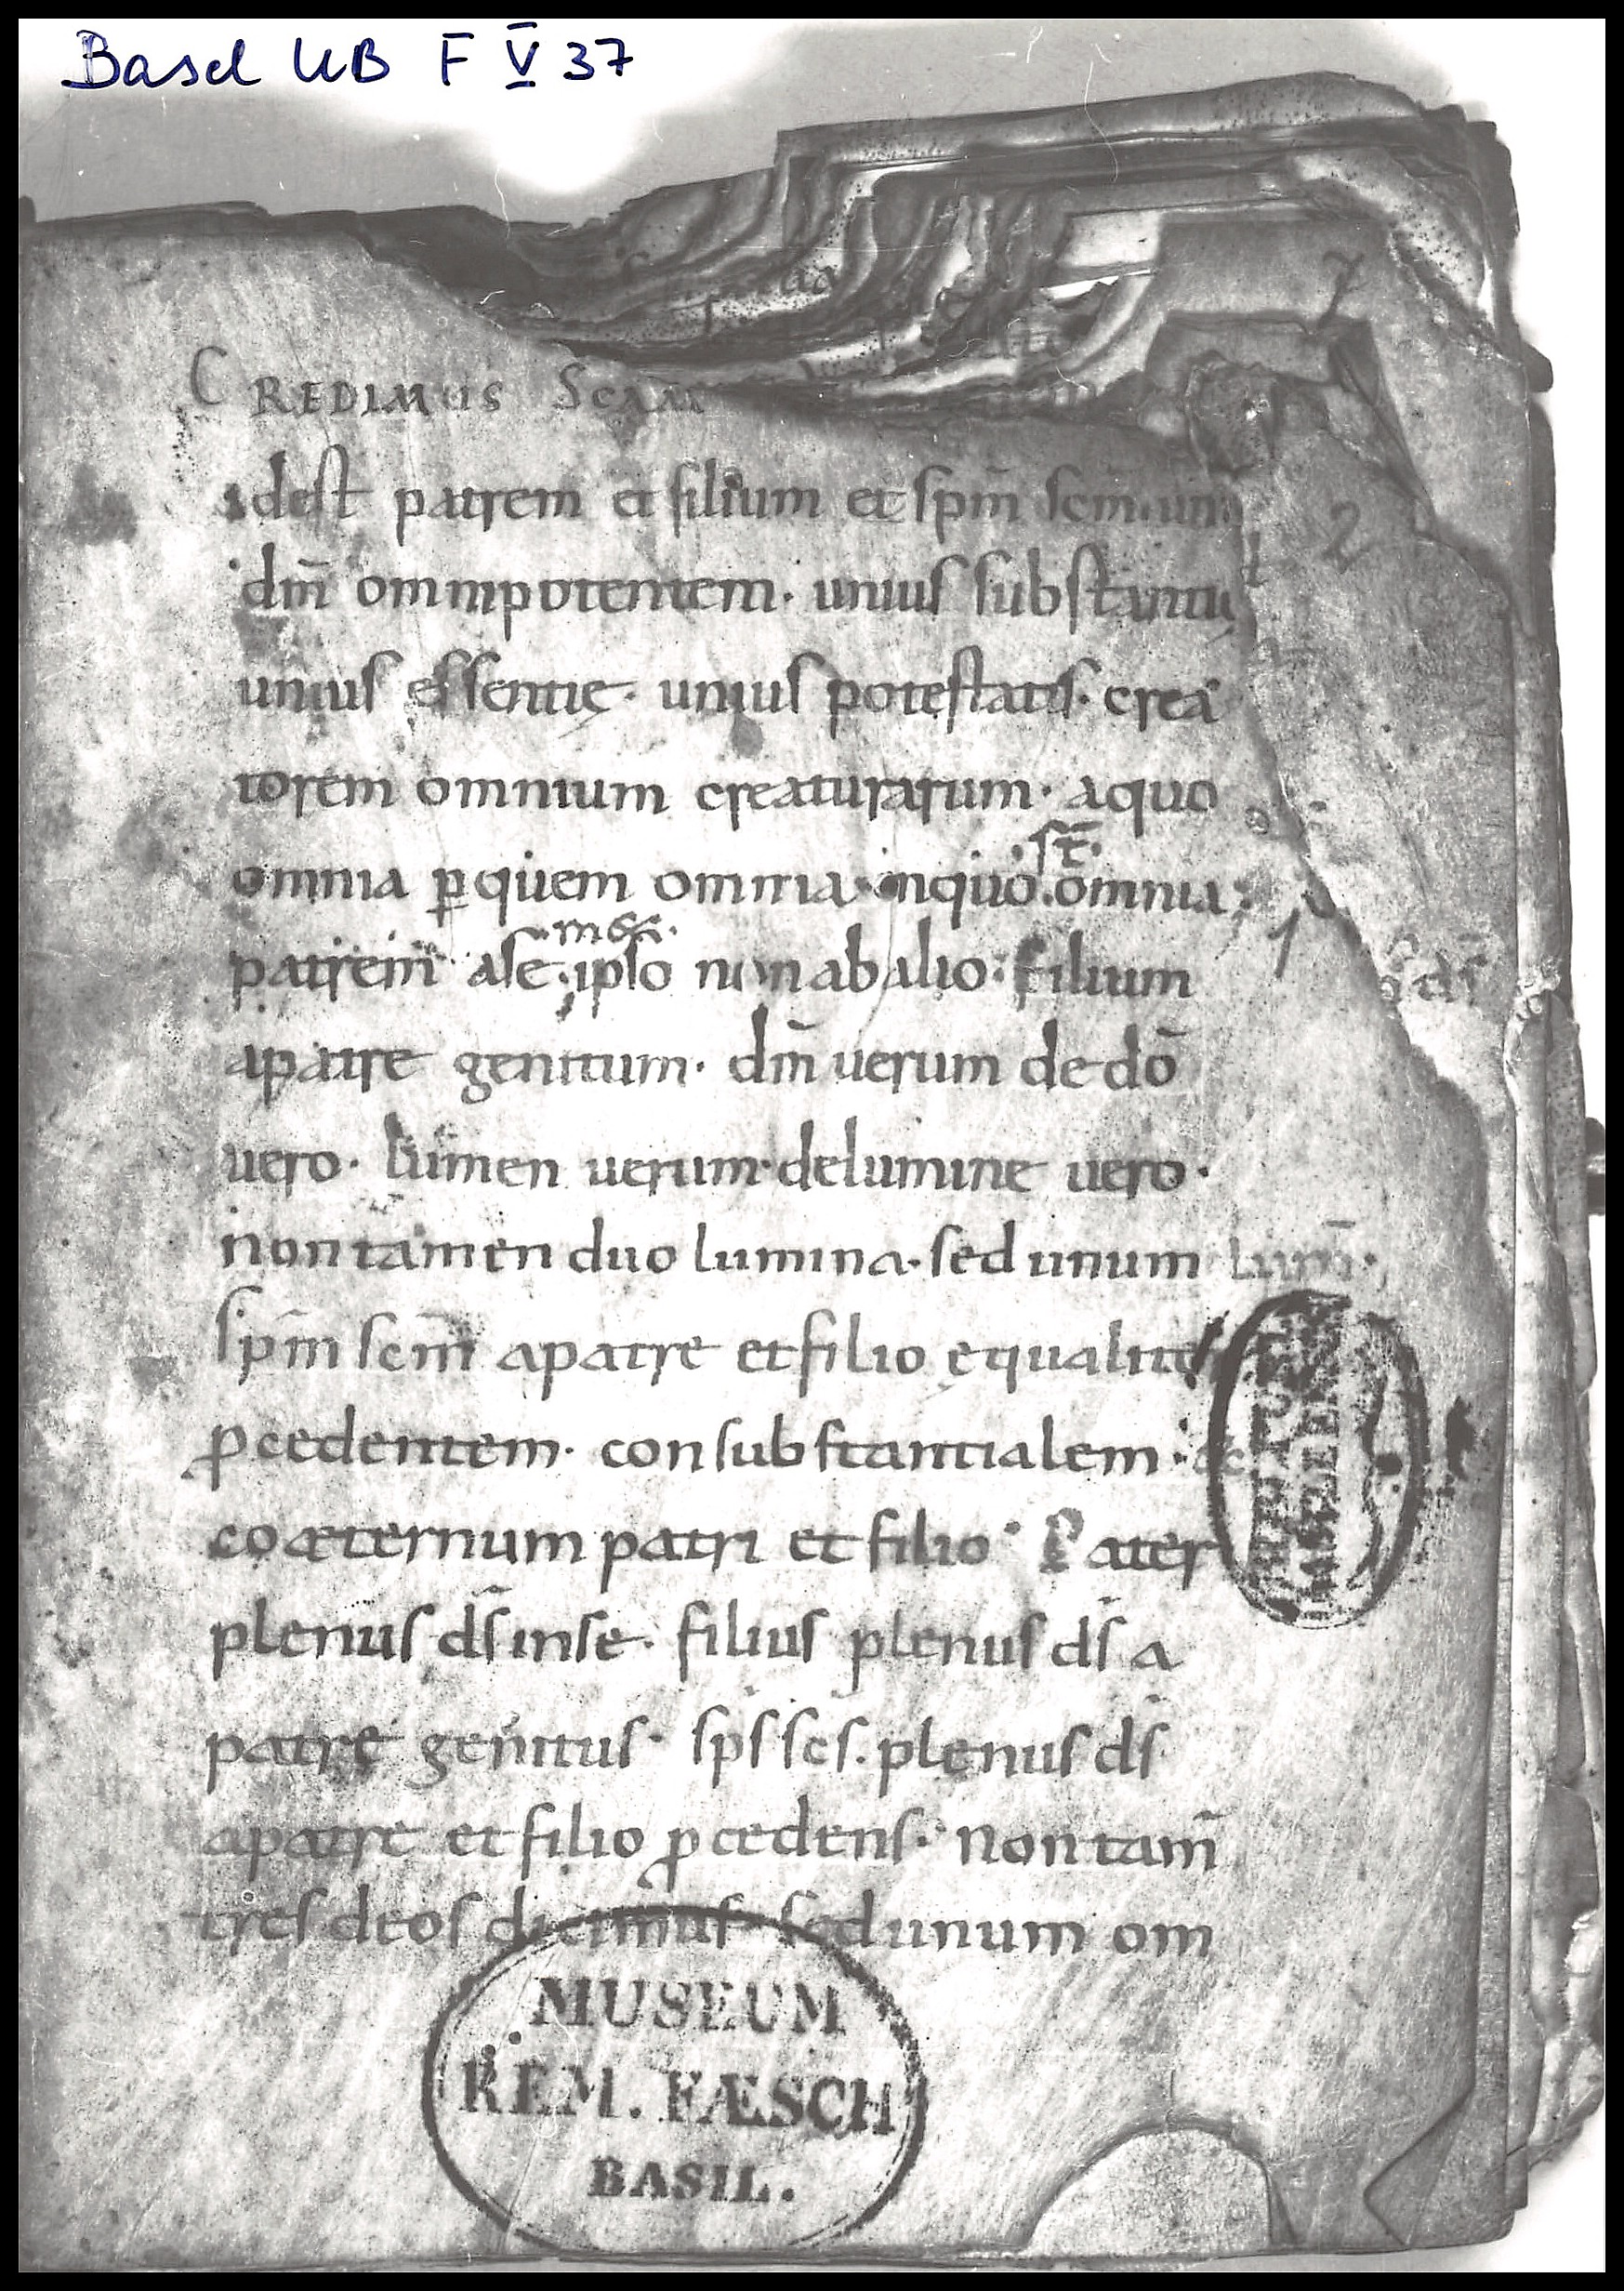 Basel UB F V 37
7
CREDIMUS SCAM
idest patrem et filium et spm̄ scm̄. un
2
dm̄ omnipotentem. unius substanti
unius essentię. unius potestatis. crea
torem omnium creaturarum. aquo
.st̄.
omnia ꝑquem omnia. inquo. omnia;
1
patrem ase. ipso non abalio. filium
ds̄
apatre genitum. dm̄ uerum dedō
uero. lumen uerum. delumine uero.
nontamen duo lumina. sed unum lum̄.
spm̄ scm̄ apatre etfilio ęqualit
ꝓcedentem. consubstantialem. ac
coæternum patri et filio. Pater
plenus ds̄ inse. filius plenus ds̄ a
patre genitus. sps̄ scs̄. plenus ds̄
apatre et filio ꝓcedens. Nontam̄
tres deos dicimus. sed unum om
MUSEUM
REM. FÆSCH
BASIL.